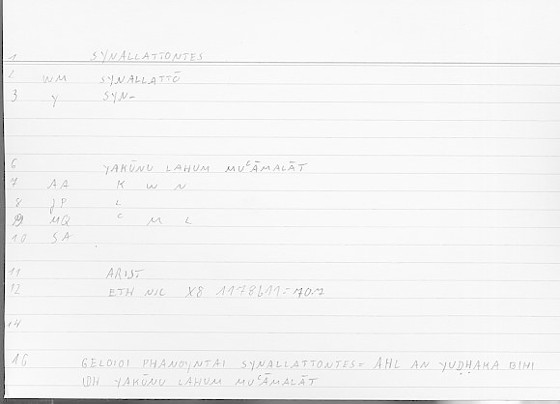 1 SYNALLATTONTES
2 WM SYNALLATTŌ
3 Y SYN-
6 YAKŪNU LAHUM MUʿĀMALĀT
7 AA K W N
8 JP L
9 MQ ʿ M L
10 SA
11 ARIST
12 ETH NIC X8 1178b11=707
14
16 GELOIOI PHANOYNTAI SYNALLATTONTES= AHL AN YUḌḤAKA BIHI
IDH YAKŪNU LAHUM MUʿĀMALĀT